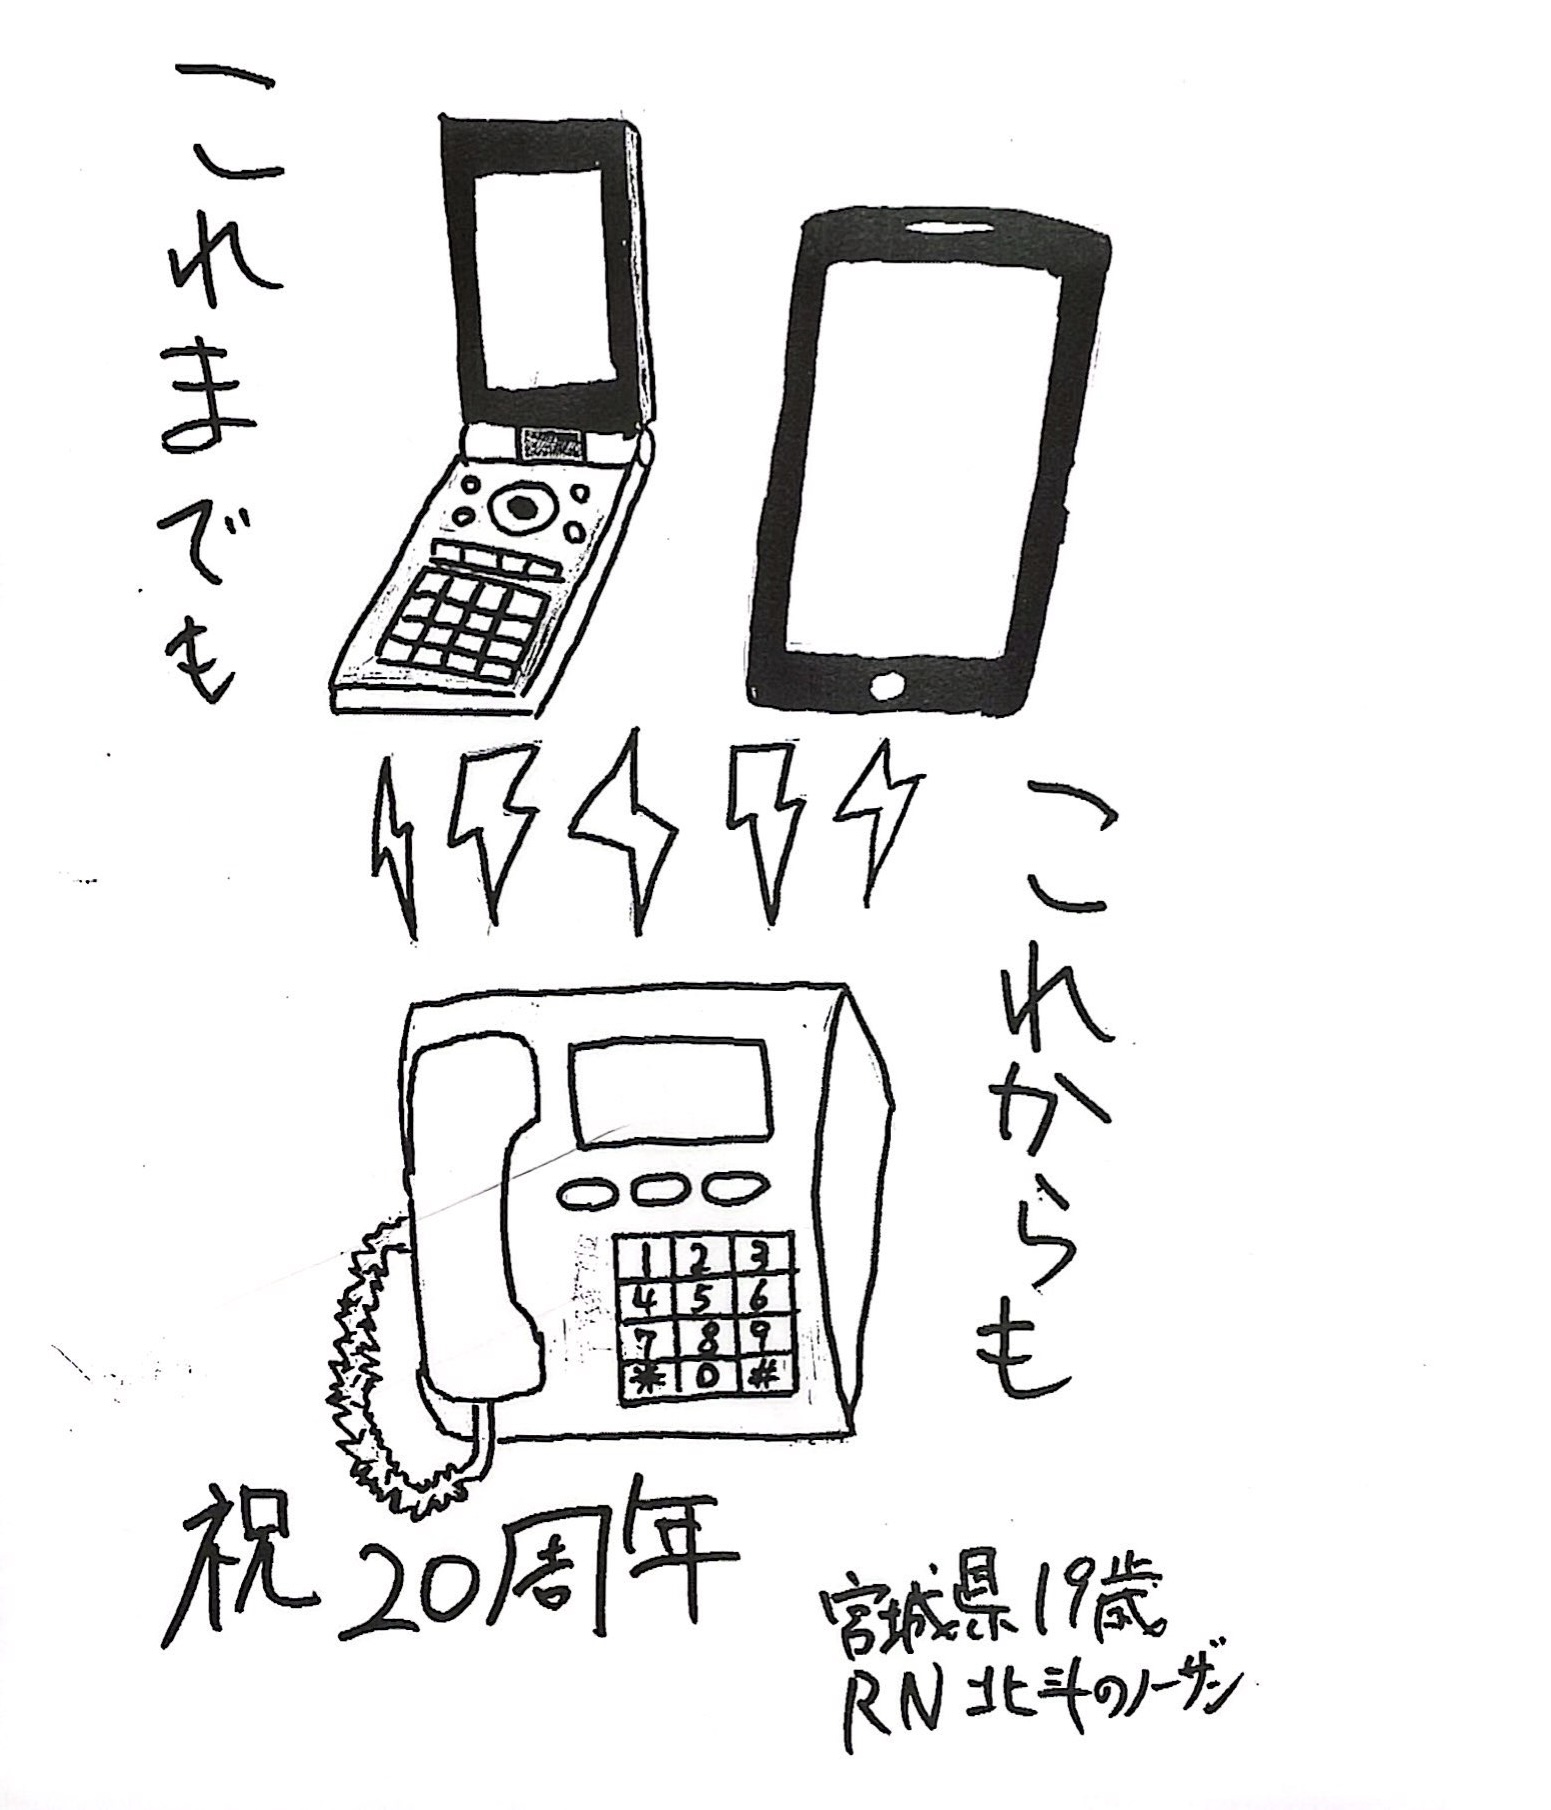 これまでも
これからも
1 2 3
4 5 6
7 8 9
* 0 #
祝20周年
宮城県19歳
RN 北斗のノーザン